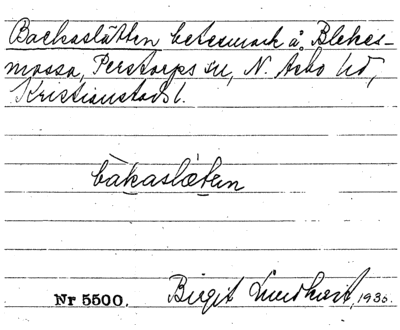 Backaslätten betesmark å Blekes-
mossa, Perstorps sn, N. Åsbo hd,
Kristianstads l.
bàkaslætein
Nr 5500. Birgit Lundkvist, 1930.